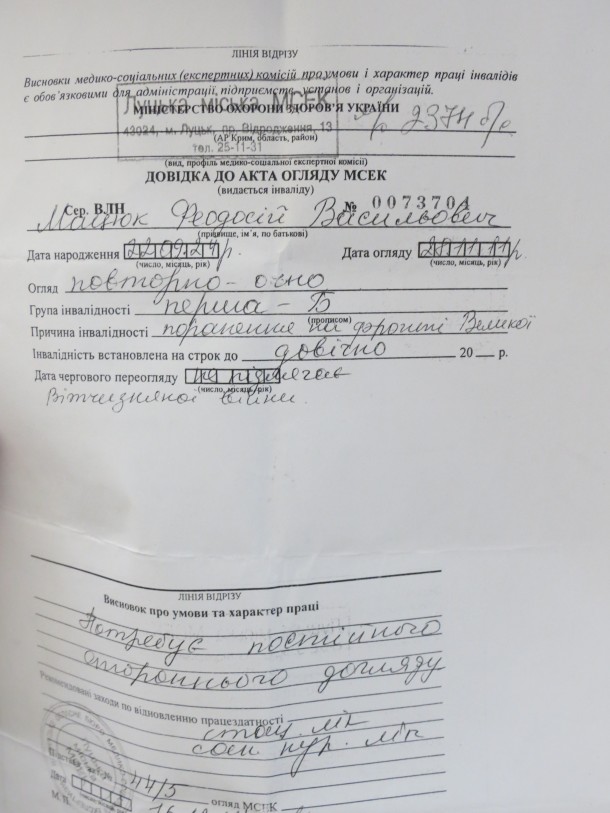 ЛІНІЯ ВІДРІЗУ
Висновки медико-соціальних (експертних) комісій про умови і характер праці інвалідів
є обов'язковими для адміністрації підприємств, установ і організацій.
Луцька міська МСЕК
МІНІСТЕРСТВО ОХОРОНИ ЗДОРОВ'Я УКРАЇНИ
43024, м. Луцьк, пр. Відродження, 13
(АР Крим, область, район)
тел. 25-11-31
(вид, профіль медико-соціальної експертної комісії)
ДОВІДКА ДО АКТА ОГЛЯДУ МСЕК
(видається інваліду)
Сер. ВЛН № 0073701
Мацюк Феодосій Васильович
(прізвище, ім'я, по батькові)
Дата народження 22.09.24 р. Дата огляду 20.11.11 р.
(число, місяць, рік) (число, місяць, рік)
Огляд повторно - очно
Група інвалідності перша - Б
(прописом)
Причина інвалідності поранення на фронті Великої
Інвалідність встановлена на строк до довічно 20 р.
Дата чергового переогляду не підлягає
(число, місяць, рік)
Вітчизняної війни.
ЛІНІЯ ВІДРІЗУ
Висновок про умови та характер праці
Потребує постійного
стороннього догляду
Рекомендовані заходи по відновленню працездатності стац. лік
сан. кур. лік
44/5
Дата огляд МСЕК
М. П.